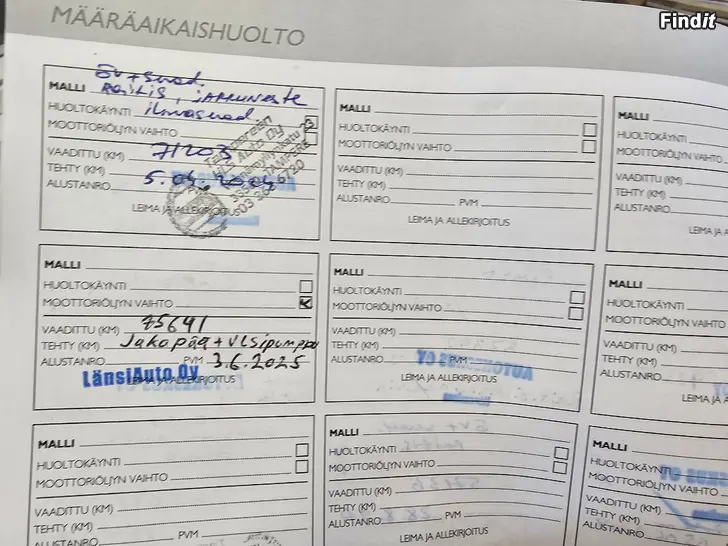 MÄÄRÄAIKAISHUOLTO
Findit
MALLI
Raitis, jarruneste
HUOLTOKÄYNTI
ilmasuod
MOOTTORIÖLJYN VAIHTO
VAADITTU (KM) 71203
TEHTY (KM)
ALUSTANRO. PVM
LEIMA JA ALLEKIRJOITUS
Tampereen
Auto Oy
TAMPERE
MALLI
HUOLTOKÄYNTI
MOOTTORIÖLJYN VAIHTO
VAADITTU (KM)
TEHTY (KM)
ALUSTANRO. PVM
LEIMA JA ALLEKIRJOITUS
MALLI
HUOLTOKÄYNTI
MOOTTORIÖLJYN
VAADITTU (KM)
TEHTY (KM)
ALUSTANRO.
LEIMA JA A
MALLI
HUOLTOKÄYNTI
MOOTTORIÖLJYN VAIHTO
VAADITTU (KM) 75641
TEHTY (KM) Jakopää + vesipumppu
ALUSTANRO PVM 3.6.2025
LänsiAuto Oy
LEIMA JA ALLEKIRJOITUS
MALLI
HUOLTOKÄYNTI
MOOTTORIÖLJYN VAIHTO
VAADITTU (KM)
TEHTY (KM)
ALUSTANRO. PVM
LEIMA JA ALLEKIRJOITUS
MALLI
HUOLTOKÄYNTI
MOOTTORIÖLJY
VAADITTU (KM)
TEHTY (KM)
ALUSTANRO.
LEIMA J
MALLI
HUOLTOKÄYNTI
MOOTTORIÖLJYN VAIHTO
VAADITTU (KM)
TEHTY (KM)
ALUSTANRO. PVM
MALLI
HUOLTOKÄYNTI
MOOTTORIÖLJYN VAIHTO
VAADITTU (KM)
TEHTY (KM)
ALUSTANRO. PVM
LEIMA JA ALLEKIRJOITUS
MALLI
HUOLTOKÄYNTI
MOOTTORIÖLJYN
VAADITTU (KM)
TEHTY (KM)
ALUSTANRO.